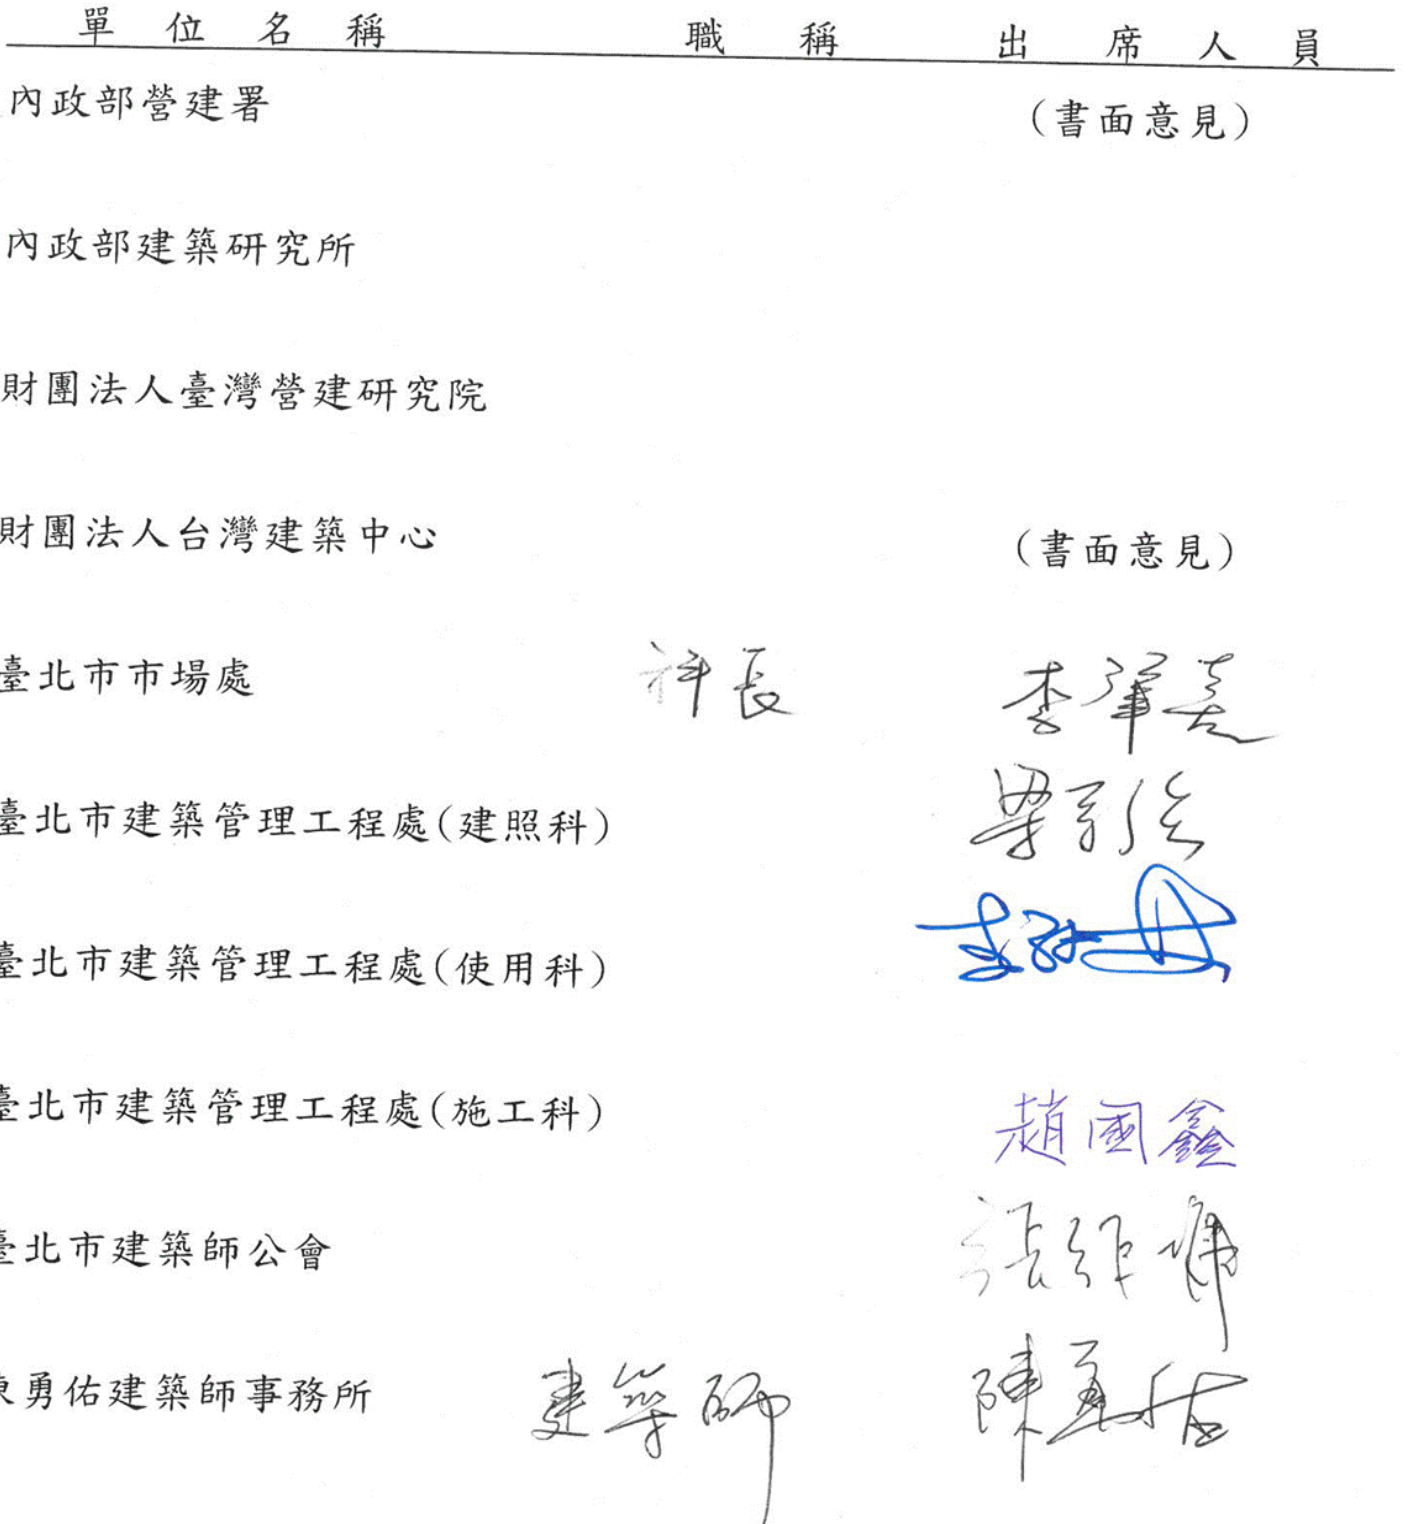 單位名稱 職稱 出席人員
內政部營建署 (書面意見)
內政部建築研究所
財團法人臺灣營建研究院
財團法人台灣建築中心 (書面意見)
臺北市市場處 科長 李
臺北市建築管理工程處(建照科) 梁
臺北市建築管理工程處(使用科)
臺北市建築管理工程處(施工科) 趙國鑫
臺北市建築師公會 張
陳勇佑建築師事務所 建築師 陳勇佑